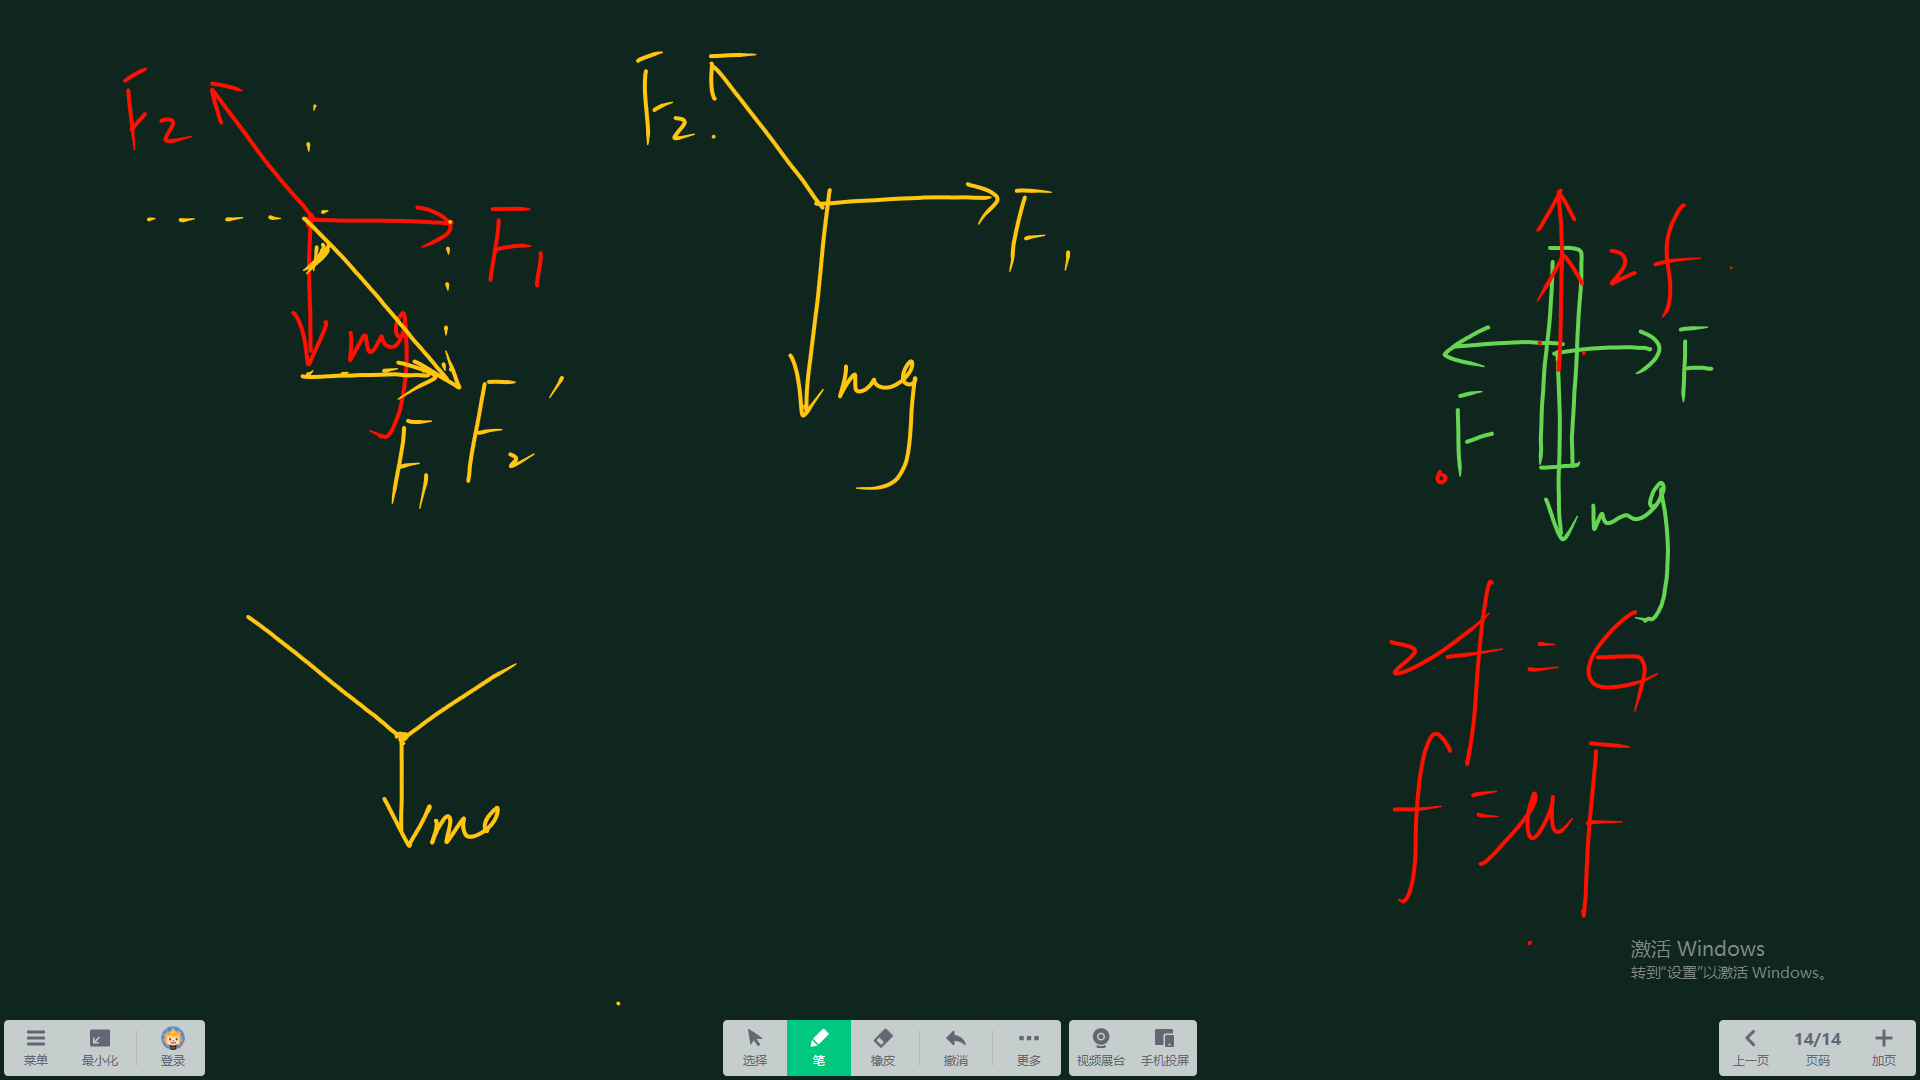 F₂
F₁
mg
F₁
F₂'
F₂
F₁
mg
mg
2f
F
F
mg
2f = G
f = μF
激活 Windows
转到“设置”以激活 Windows。
菜单
最小化
登录
选择
笔
橡皮
撤消
更多
视频展台
手机投屏
上一页
14/14
页码
加页